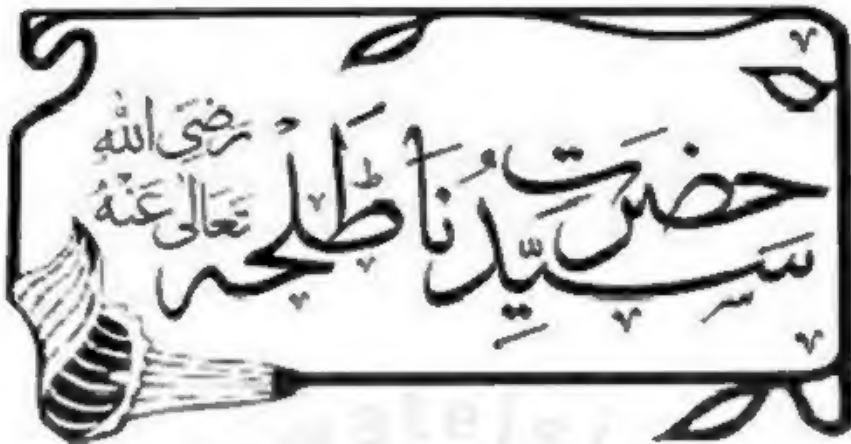 حضرت سَیِّدُنَا طَلْحہ
رَضِیَ اللهُ
تَعَالٰی عَنْهُ